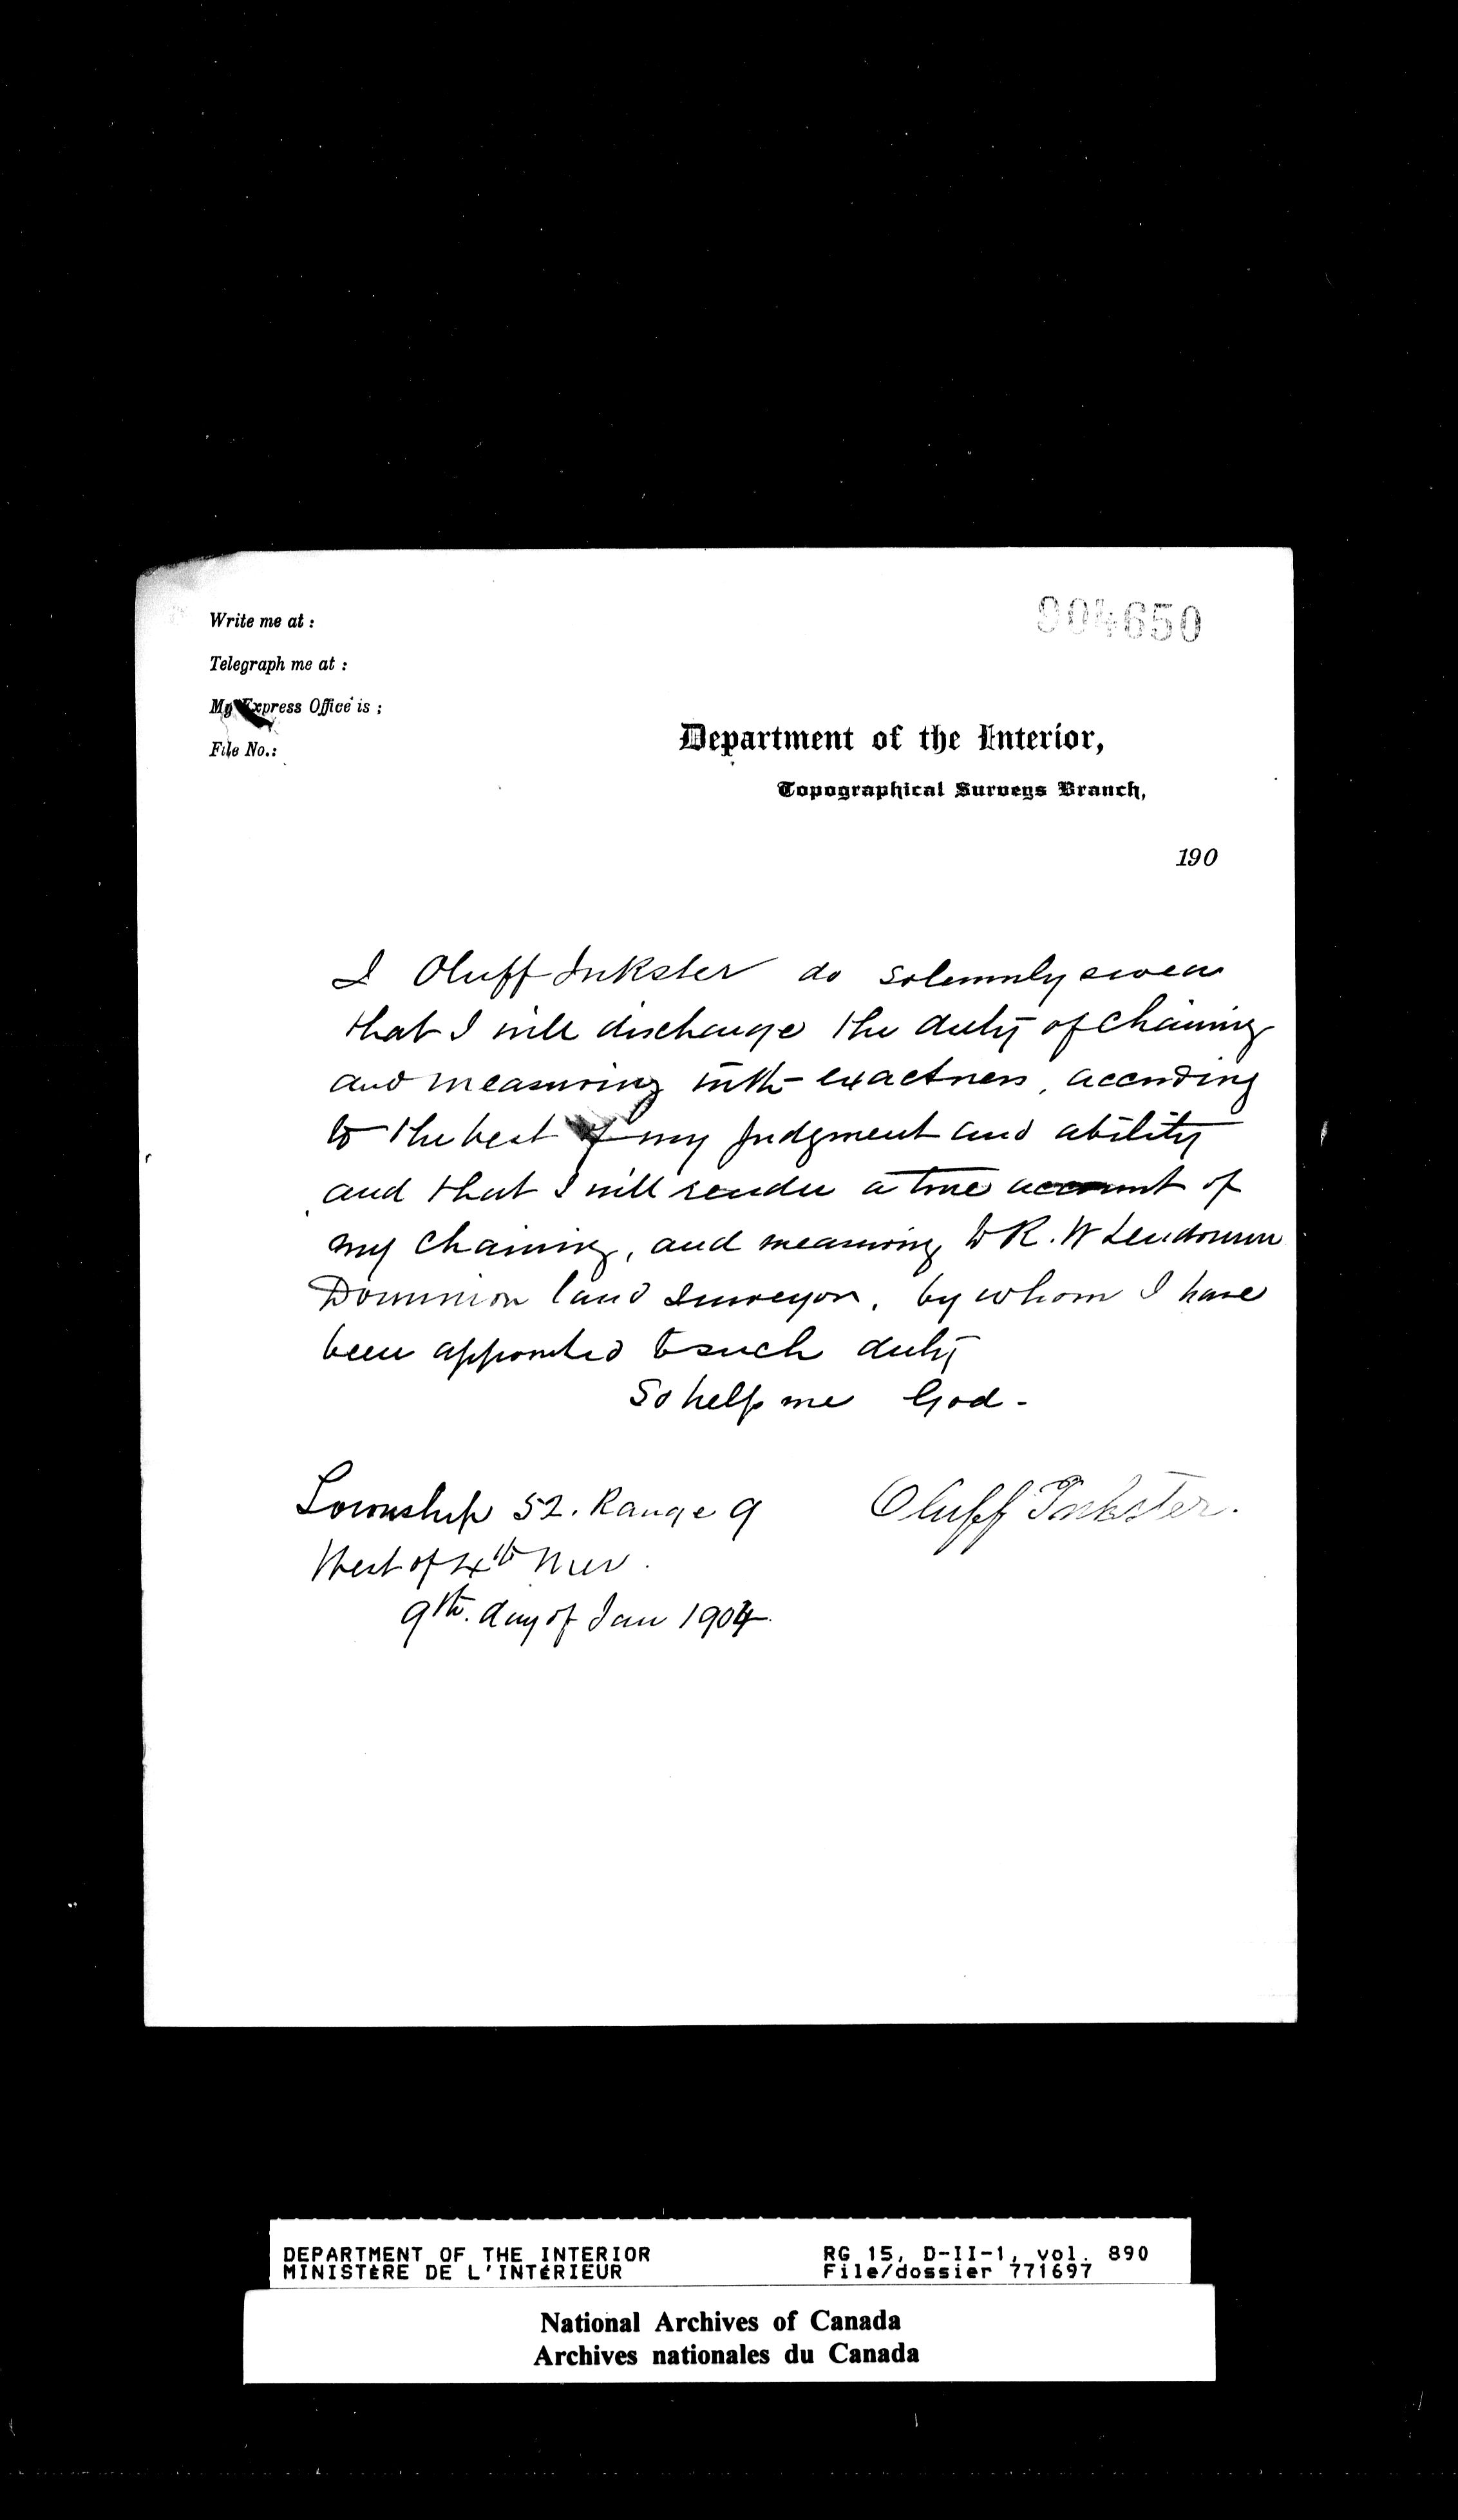 904650
Write me at :
Telegraph me at :
My Express Office is ;
File No.:
Department of the Interior,
Topographical Surveys Branch,
190
I Oluff Inkster do solemnly swear
that I will discharge the duty of chaining
and measuring with exactness, according
to the best of my judgment and ability
and that I will render a true account of
my chaining, and measuring to R. W Lendrum
Dominion land surveyor, by whom I have
been appointed to such duty
So help me God -
Township 52. Range 9
Oluff Inkster.
West of 4th Mer.
9th. day of Jan 1904.
DEPARTMENT OF THE INTERIOR
MINISTÈRE DE L'INTÉRIEUR
RG 15, D-II-1, vol. 890
File/dossier 771697
National Archives of Canada
Archives nationales du Canada